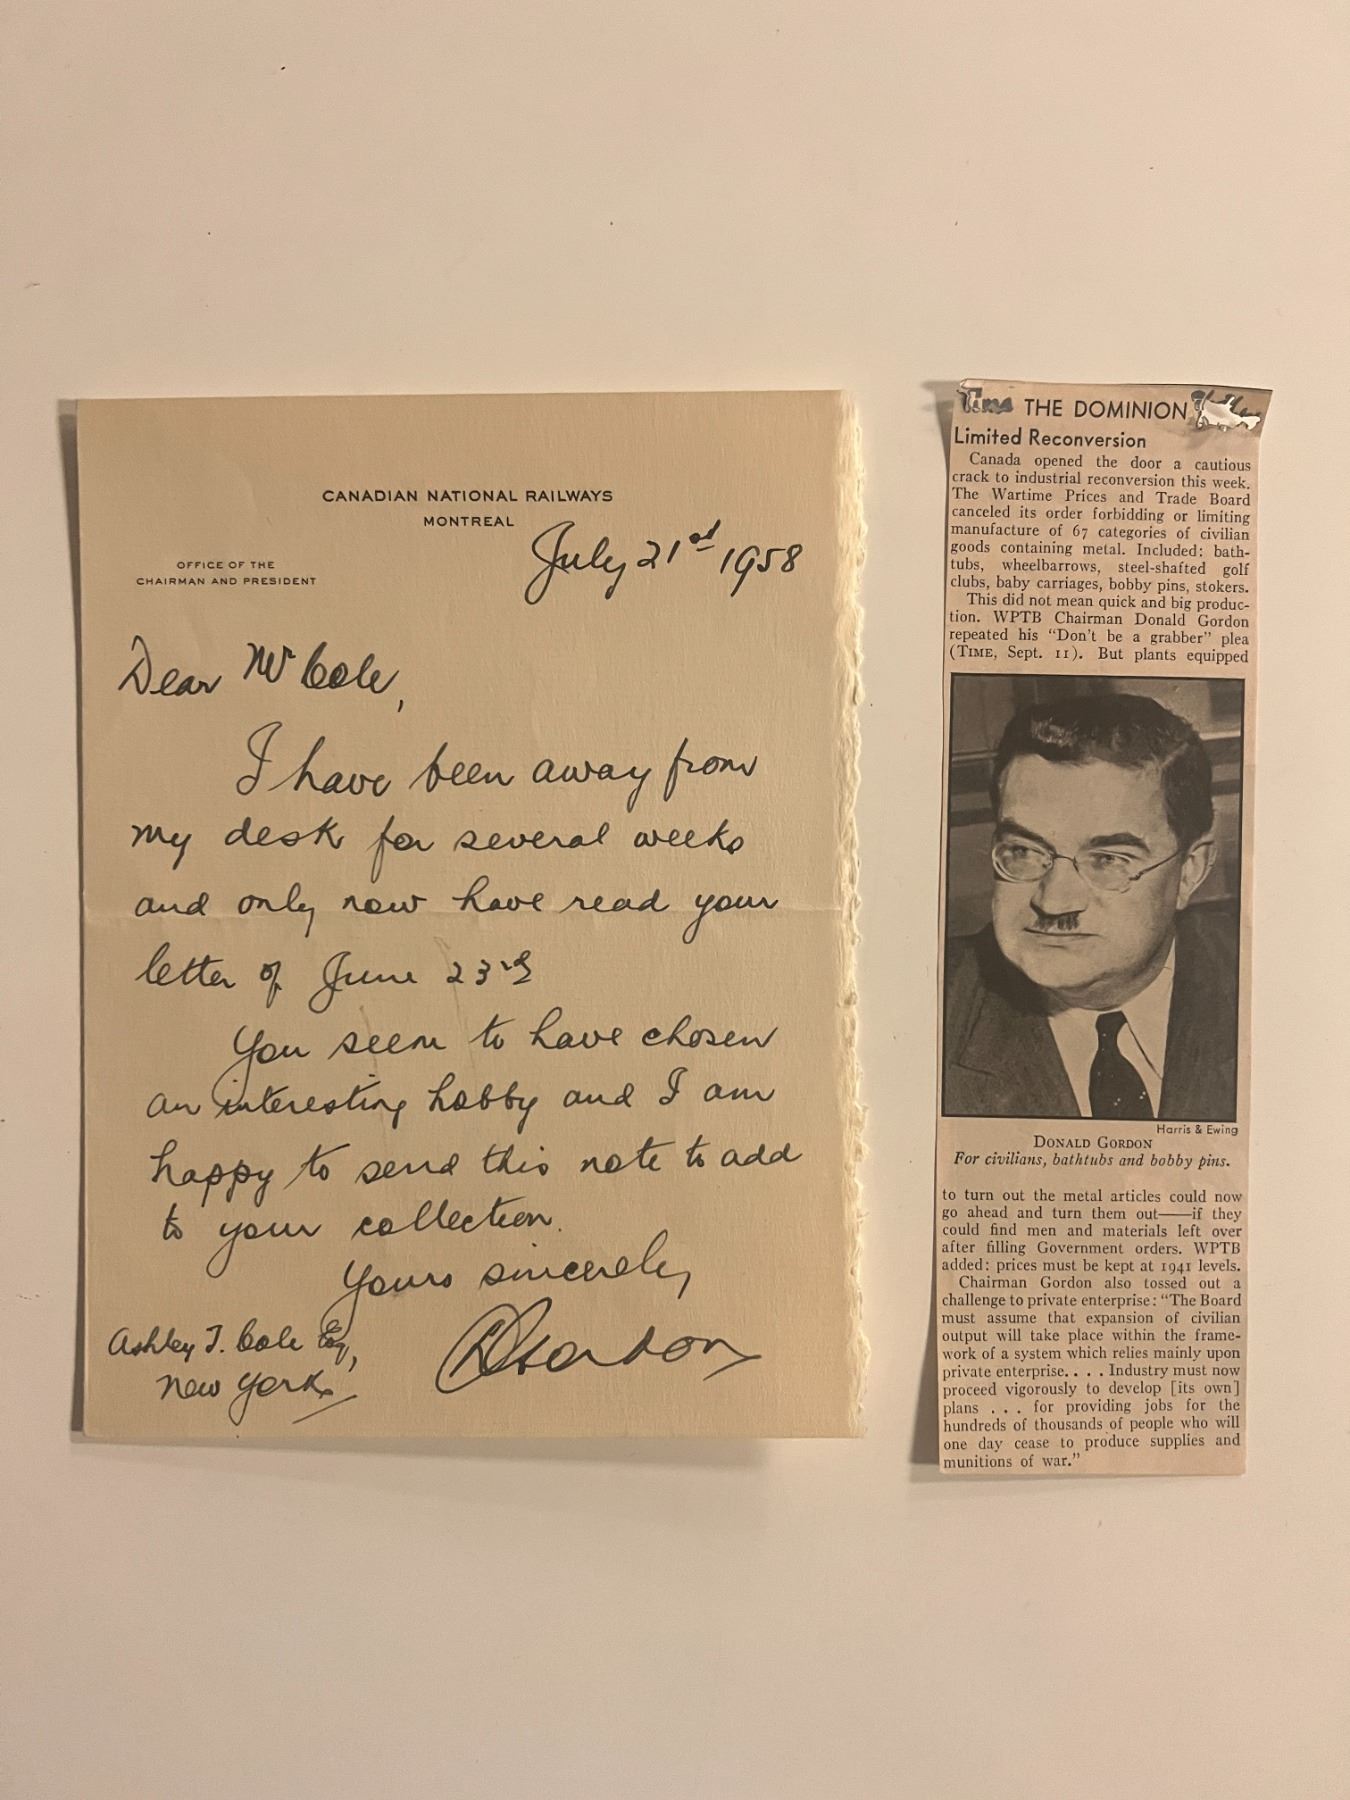 CANADIAN NATIONAL RAILWAYS
MONTREAL
OFFICE OF THE
CHAIRMAN AND PRESIDENT
July 21st 1958
Dear Mr Cole,
I have been away from
my desk for several weeks
and only now have read your
letter of June 23rd
You seem to have chosen
an interesting hobby and I am
happy to send this note to add
to your collection.
Yours sincerely
DGordon
Ashley T. Cole Esq,
New York.
Time THE DOMINION
Limited Reconversion
Canada opened the door a cautious
crack to industrial reconversion this week.
The Wartime Prices and Trade Board
canceled its order forbidding or limiting
manufacture of 67 categories of civilian
goods containing metal. Included: bath-
tubs, wheelbarrows, steel-shafted golf
clubs, baby carriages, bobby pins, stokers.
This did not mean quick and big produc-
tion. WPTB Chairman Donald Gordon
repeated his "Don't be a grabber" plea
(TIME, Sept. 11). But plants equipped
Harris & Ewing
DONALD GORDON
For civilians, bathtubs and bobby pins.
to turn out the metal articles could now
go ahead and turn them out——if they
could find men and materials left over
after filling Government orders. WPTB
added: prices must be kept at 1941 levels.
Chairman Gordon also tossed out a
challenge to private enterprise: "The Board
must assume that expansion of civilian
output will take place within the frame-
work of a system which relies mainly upon
private enterprise. . . . Industry must now
proceed vigorously to develop [its own]
plans . . . for providing jobs for the
hundreds of thousands of people who will
one day cease to produce supplies and
munitions of war."